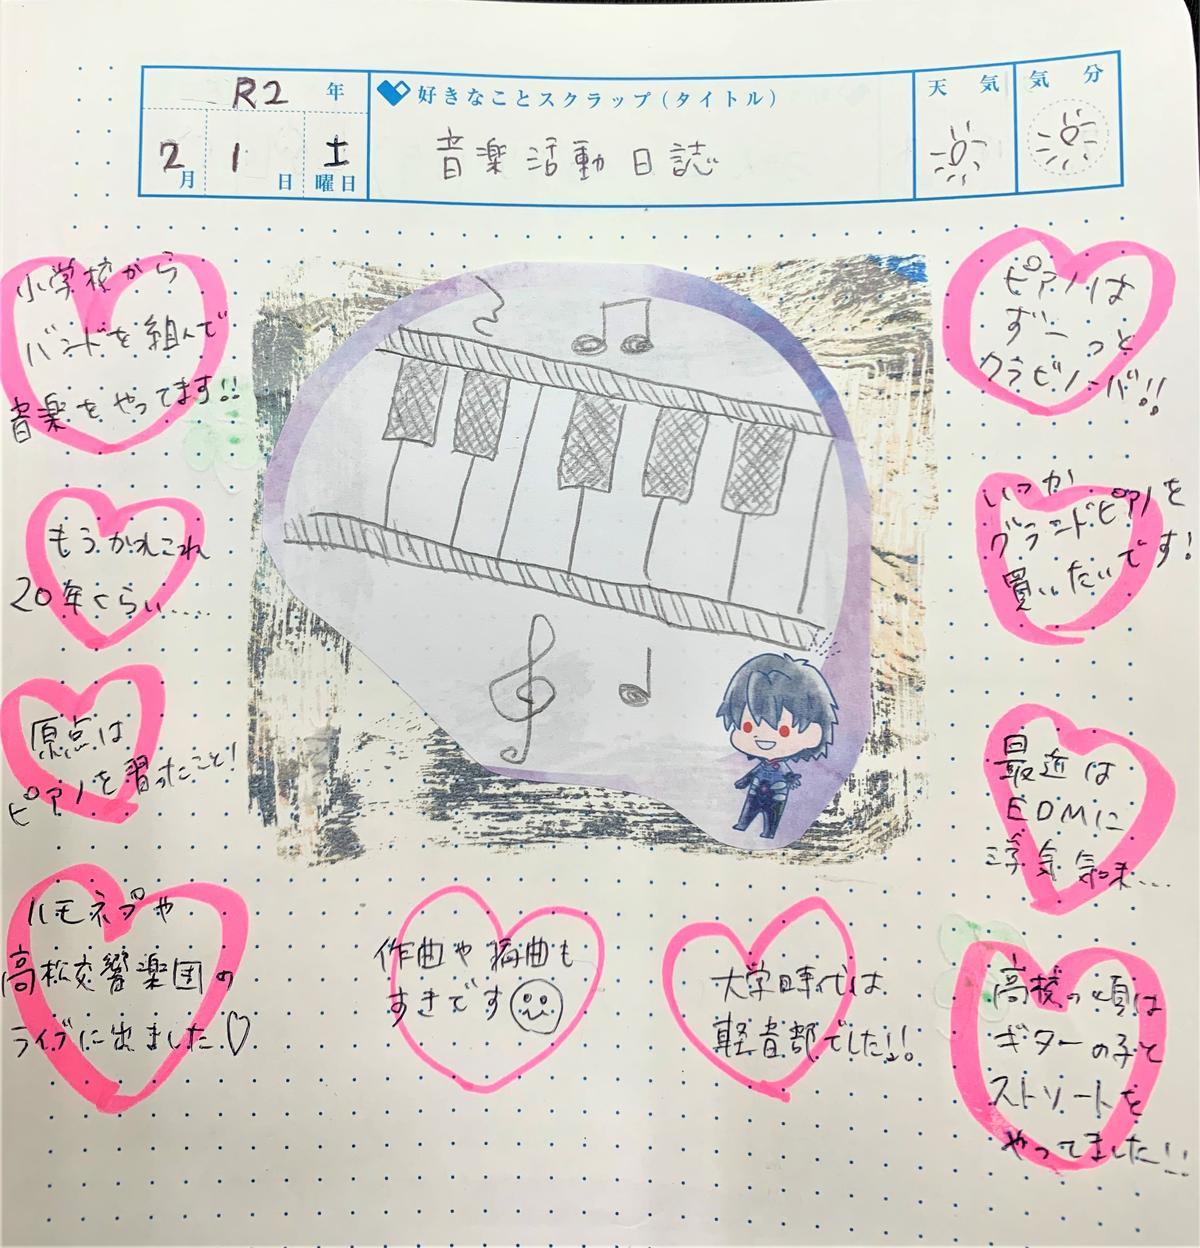 R2 年
2月 1日 土曜日
好きなことスクラップ(タイトル)
音楽活動日誌
天気
気分
小学校から
バンドを組んで
音楽をやってます!!
もうかれこれ
20年くらい……
原点は
ピアノを習ったこと!
ハモネプや
高松交響楽団の
ライブに出ました♡
作曲や編曲も
すきです
大学時代は
軽音部でした!!
ピアノは
ずーっと
クラビノーバ!!
いつか
グランドピアノを
買いたいです!
最近は
EDMに
浮気気味…
高校の頃は
ギターの子と
ストリートを
やってました!!